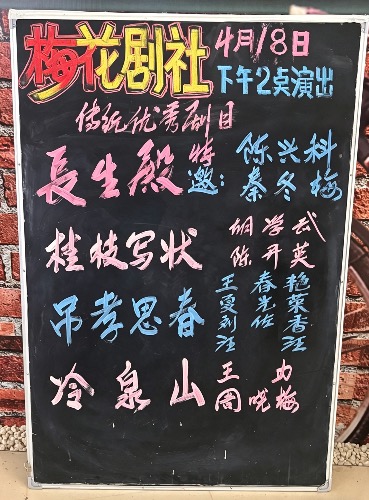 梅花剧社 4月18日
下午2点演出
传统优秀剧目
長生殿 特邀: 陈兴科
秦冬梅
桂枝写状 胡学武
陈开英
吊孝思春 王春艳
冷泉山 王